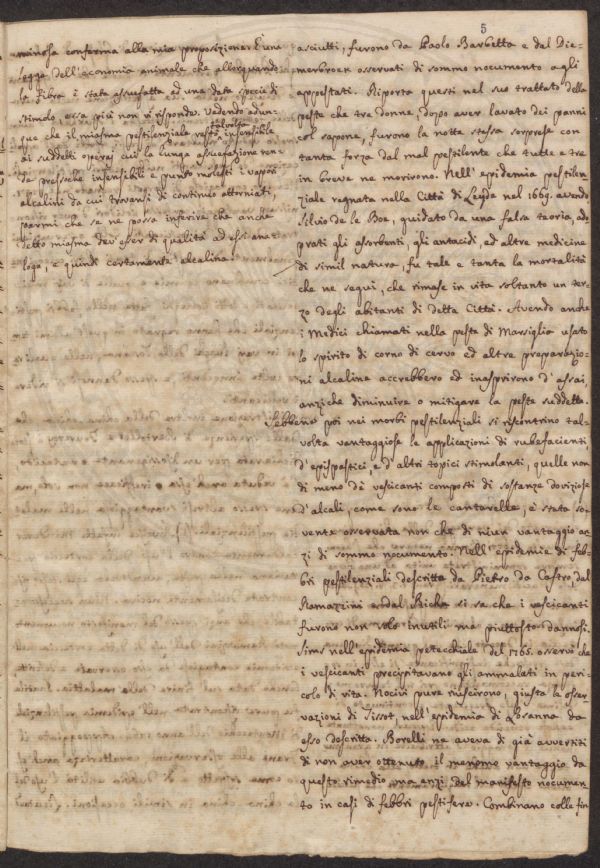 5
minosa conferma alla mia proposizione. È una
legge dell'economia animale che allorquando
la fibra i stata assuefatta ad una data specie di
stimolo, essa piú non vi risponde. Vedendo adun-
que che il miasma pestilenziale resta insensibile
ai suddetti operaj cui la lunga assuefazione ren-
de pressoche insensibili e punto molesti i vapori
alcalini da cui trovansi di continuo attorniati,
parmi che se ne possa inferire che anche
detto miasma dev'esser di qualità ad essi ana-
loga, e quindi certamente alcalina.
asciutti, furono da Paolo Barbetta e dal Die-
merbroek osservati di sommo nocumento agli
appestati. Riporta questi nel suo trattato della
peste che tre donne, dopo aver lavato dei panni
col sapone, furono la notte stessa sorprese con
tanta forza dal mal pestilente che tutte e tre
in breve ne morirono. Nell'epidemia pestilen-
ziale regnata nella Città di Leyde nel 1669. avendo
Silvio de le Boe, guidato da una falsa teoria, ado
prati gli assorbenti, gli antacidi, ed altre medicine
di simil natura, fu tale e tanta la mortalità
che ne seguì, che rimase in vita soltanto un ter-
zo degli abitanti di detta Città. Avendo anche
i Medici chiamati nella peste di Marsiglia usato
lo spirito di corno di cervo ed altre preparazio-
ni alcaline accrebbero ed inasprirono d'assai,
anziche diminuire o mitigare la peste suddetta.
Sebbene poi nei morbi pestilenziali si riscontrino tal-
volta vantaggiose le applicazioni di rubefacienti
d'epispastici, e d'altri topici stimolanti, quelle non
di meno de' vescicanti composti di sostanze doviziose
d'alcali, come sono le cantarelle, è stata so-
vente osservata non che di niun vantaggio an-
zi di sommo nocumento. Nell'epidemie di feb-
bri pestilenziali descritta da Pietro da Castro, dal
Ramazzini e dal si sa che i vescicanti
furono non solo inutili ma piuttosto dannosi.
Sims nell'epidemia petecchiale del 1765. osservò che
i vescicanti precipitavano gli ammalati in peri-
colo di vita. Nocivi pure riuscirono, giusta le osser-
vazioni di Tissot, nell'epidemia di Losanna da
esso descritta. Borelli ne aveva di già avvertiti
di non aver ottenuto il menomo vantaggio da
questo rimedio, ma anzi del manifesto nocumen-
to in casi di febbri pestifere. Combinano colle fin